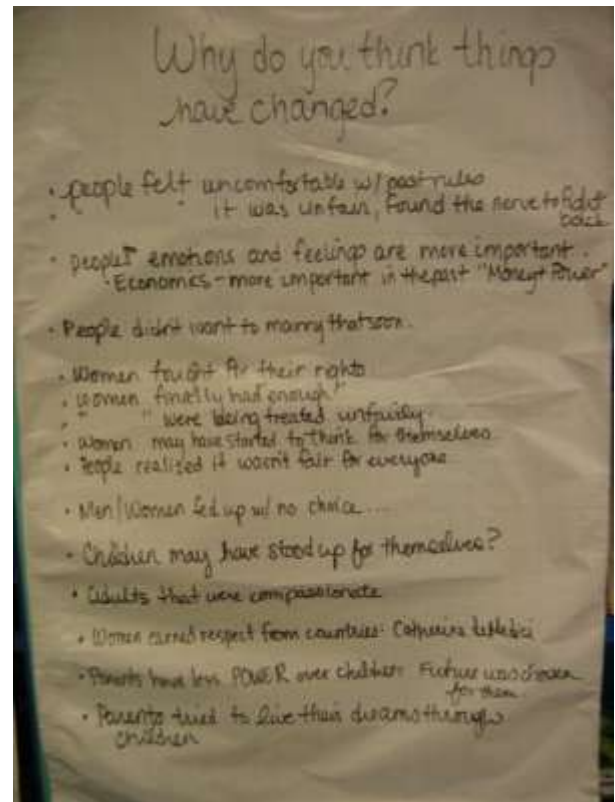 Why do you think things
have changed?
• people felt uncomfortable w/past rules
it was unfair, found the nerve to fight
back
• people's emotions and feelings are more important.
• Economics - more important in the past "Money + Power"
• People didn't want to marry that soon.
• Women fought for their rights
• Women finally had enough!"
• " " were being treated unfairly.
• Women may have started to think for themselves
• People realized it wasn't fair for everyone
• Men/Women fed up w/ no choice....
• Children may have stood up for themselves?
• Adults that were compassionate
• Women earned respect from countries- Catherine
• Parents have less POWER over children. Future was chosen
for them.
• Parents tried to live their dreams through
children